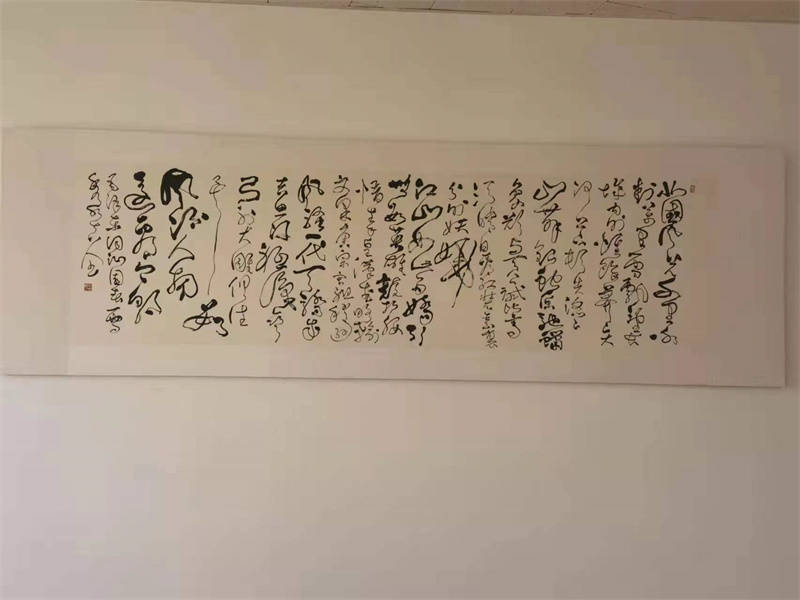 北國风光千里冰
封万里雪飘望长
城内外惟馀莽莽大
河上下顿失滔滔
山舞银蛇原驰蜡
象欲与天公试比高
须晴日看红装素裹
分外妖娆
江山如此多娇引
无数英雄竞折腰
惜秦皇汉武略输
文采唐宗宋祖稍逊
风骚一代天骄成
吉思汗只识弯
弓射大雕俱往
矣数
风流人物
还看今朝
毛泽东词沁园春雪